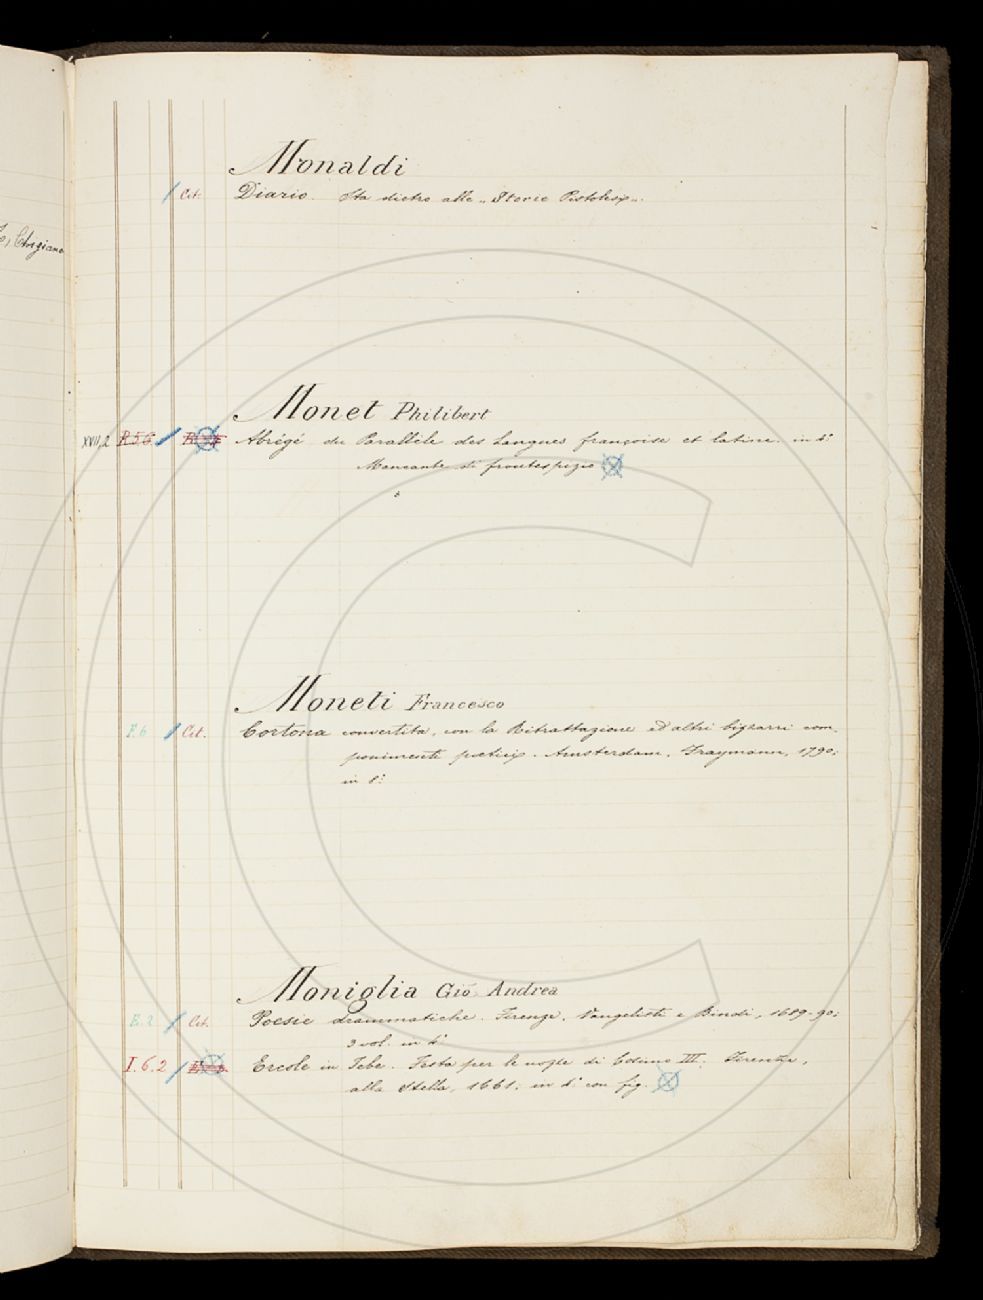 Monaldi
Cit. Diario. Sta dietro alle „Storie Pistolesi„.
e, Chigiano
Monet Philibert
XVII,2 P.5.6. Abrégé du Parallèle des Langues françoise et latine. in 4°
Mancante di frontespizio
Moneti Francesco
F.6 Cit. Cortona convertita, con la Ritrattazione ed altri bizzarri com-
ponimenti poetici. Amsterdam, Traymann, 1790;
in 8°
Moniglia Gio Andrea
E.2 Cit. Poesie drammatiche. Firenze, Vangelisti e Bindi, 1689-90;
3 vol. in 4°
I.6.2 Ercole in Tebe. Festa per le nozze di Cosimo III; Firenze,
alla Stella, 1661; in 4° con fig.